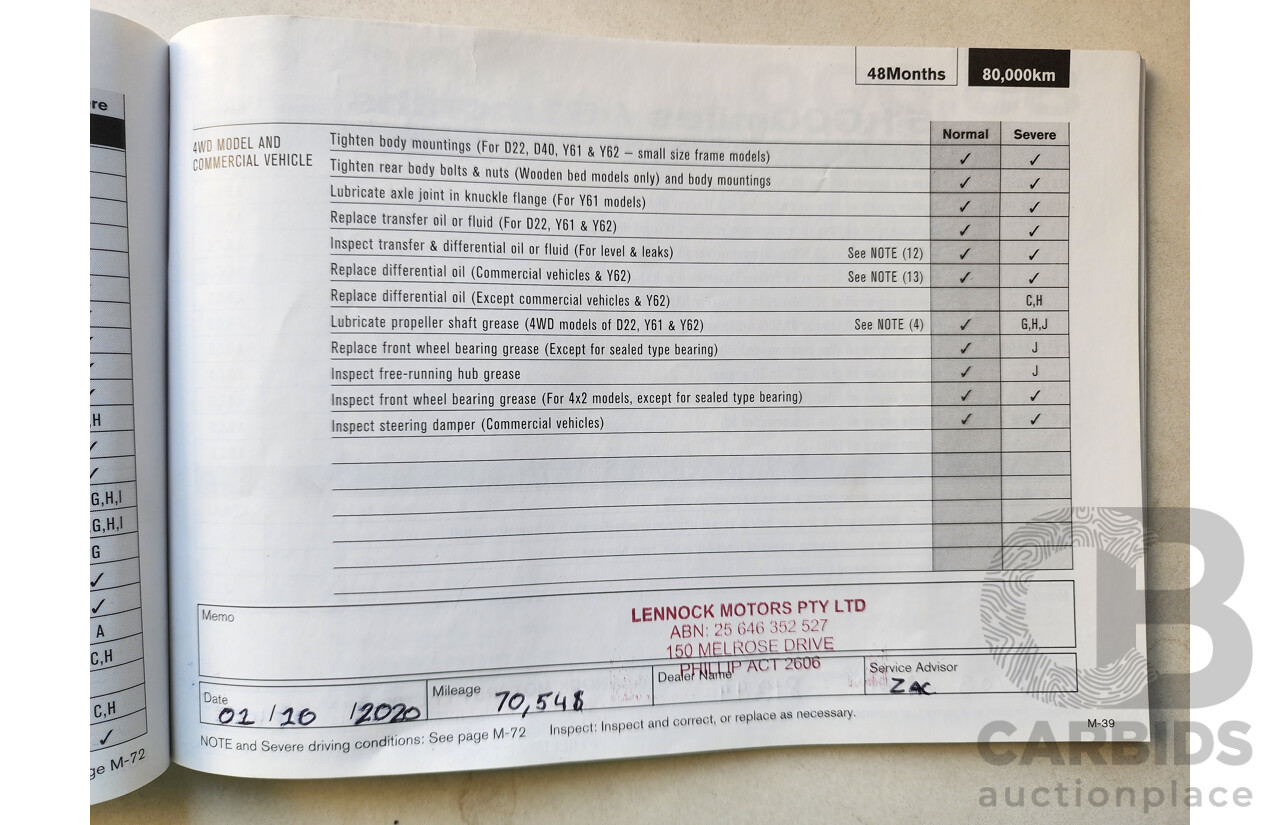 re
H
✓
✓
G,H,I
G,H,I
G
✓
✓
A
C,H
C,H
✓
ge M-72
48Months 80,000km
Normal Severe
4WD MODEL AND
COMMERCIAL VEHICLE
Tighten body mountings (For D22, D40, Y61 & Y62 – small size frame models) ✓ ✓
Tighten rear body bolts & nuts (Wooden bed models only) and body mountings ✓ ✓
Lubricate axle joint in knuckle flange (For Y61 models) ✓ ✓
Replace transfer oil or fluid (For D22, Y61 & Y62) ✓ ✓
Inspect transfer & differential oil or fluid (For level & leaks) See NOTE (12) ✓ ✓
Replace differential oil (Commercial vehicles & Y62) See NOTE (13) ✓ ✓
Replace differential oil (Except commercial vehicles & Y62) C,H
Lubricate propeller shaft grease (4WD models of D22, Y61 & Y62) See NOTE (4) ✓ G,H,J
Replace front wheel bearing grease (Except for sealed type bearing) ✓ J
Inspect free-running hub grease ✓ J
Inspect front wheel bearing grease (For 4x2 models, except for sealed type bearing) ✓ ✓
Inspect steering damper (Commercial vehicles) ✓ ✓
Memo
LENNOCK MOTORS PTY LTD
ABN: 25 646 352 527
150 MELROSE DRIVE
PHILLIP ACT 2606
Date 01/10/2020
Mileage 70,548
Dealer Name
Service Advisor Zac
NOTE and Severe driving conditions: See page M-72 Inspect: Inspect and correct, or replace as necessary.
M-39
CB
CARBIDS
auctionplace